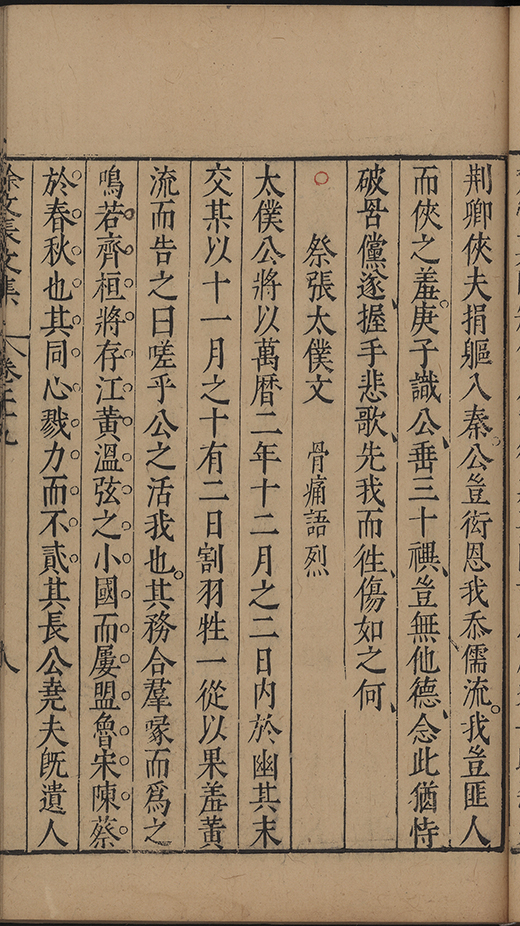 荆卿俠夫捐軀入秦公豈銜恩我忝儒流我豈匪人
而俠之羞庚子識公垂三十禩豈無他德念此猶恃
破呂黨遂握手悲歌先我而徃傷如之何
祭張太僕文　骨痛語烈
太僕公將以萬曆二年十二月之二日内於幽其末
交某以十一月之十有二日割羽牲一從以果羞黄
流而告之曰嗟乎公之活我也其務合羣喙而爲之
鳴若齊桓將存江黄溫弦之小國而屢盟魯宋陳蔡
於春秋也其同心戮力而不貳其長公堯夫旣遺人
徐文長文集　卷二十九　八